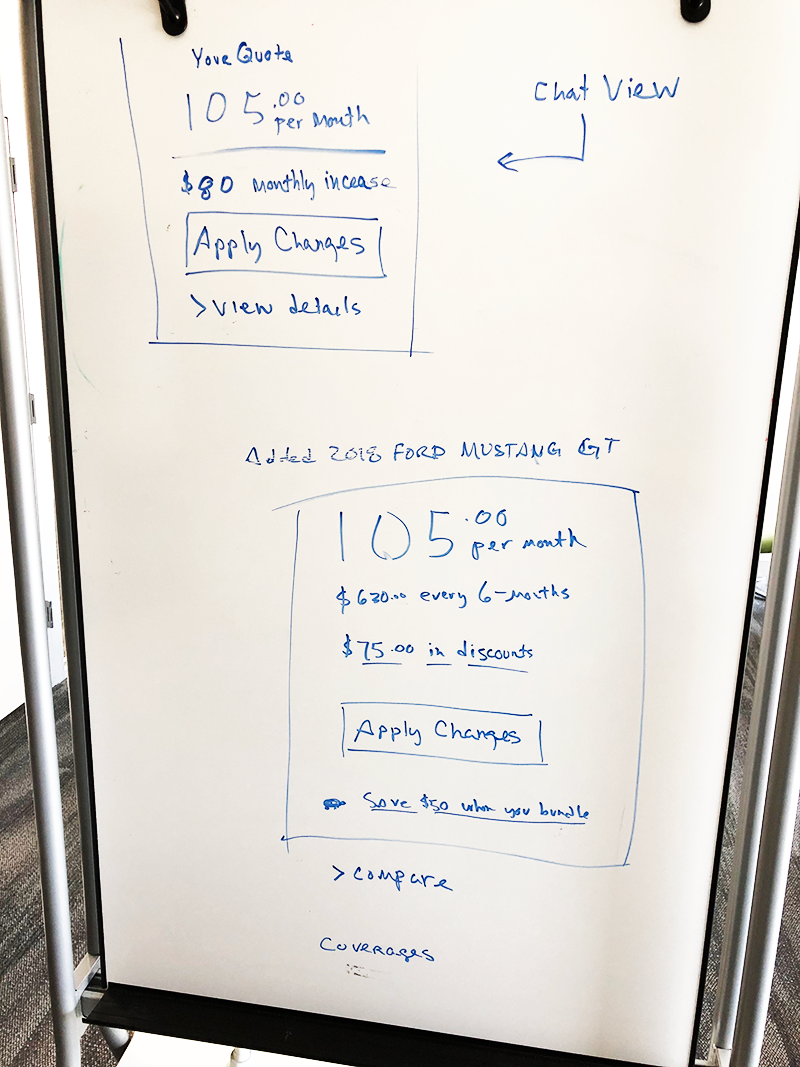 Your Quote
105.00
per Month
$80 monthly incease
Apply Changes
> View details
Chat View
Added 2018 FORD MUSTANG GT
105.00
per month
$630.00 every 6-months
$75.00 in discounts
Apply Changes
Save $50 when you bundle
> compare
Coverages